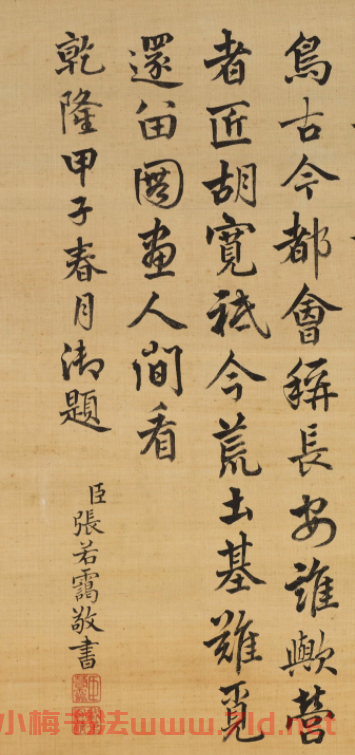 鳥古今都會稱長安誰歟營
者匠胡寬祗今荒土基難覓
還留圖畫人間看
乾隆甲子春月御題
臣張若靄敬書
小梅书法www.9ld.net